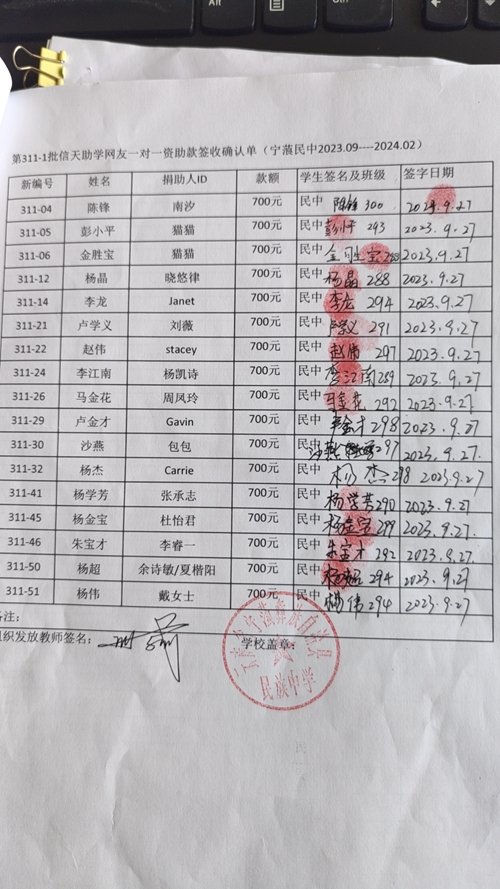 Alt
Ctrl
第311-1批信天助学网友一对一资助款签收确认单（宁蒗民中2023.09----2024.02）
新编号 姓名 捐助人ID 款额 学生签名及班级 签字日期
311-04 陈锋 南汐 700元 民中 陈锋 300 2023.9.27
311-05 彭小平 猫猫 700元 民中 彭小平 293 2023.9.27
311-06 金胜宝 猫猫 700元 民中 金胜宝 288 2023.9.27
311-12 杨晶 晓悠律 700元 民中 杨晶 288 2023.9.27
311-14 李龙 Janet 700元 民中 李龙 294 2023.9.27
311-21 卢学义 刘薇 700元 民中 卢学义 291 2023.9.27
311-22 赵伟 stacey 700元 民中 赵伟 297 2023.9.27
311-24 李江南 杨凯诗 700元 民中 李江南 289 2023.9.27
311-26 马金花 周凤玲 700元 民中 马金花 292 2023.9.27
311-29 卢金才 Gavin 700元 民中 卢金才 298 2023.9.27
311-30 沙燕 包包 700元 民中 沙燕 297 2023.9.27
311-32 杨杰 Carrie 700元 民中 杨杰 298 2023.9.27
311-41 杨学芳 张承志 700元 民中 杨学芳 290 2023.9.27
311-45 杨金宝 杜怡君 700元 民中 杨金宝 299 2023.9.27
311-46 朱宝才 李睿一 700元 民中 朱宝才 292 2023.9.27
311-50 杨超 余诗敏/夏楷阳 700元 民中 杨超 294 2023.9.27
311-51 杨伟 戴女士 700元 民中 杨伟 294 2023.9.27
备注：
组织发放教师签名： 学校盖章：
宁蒗彝族自治县
民族中学